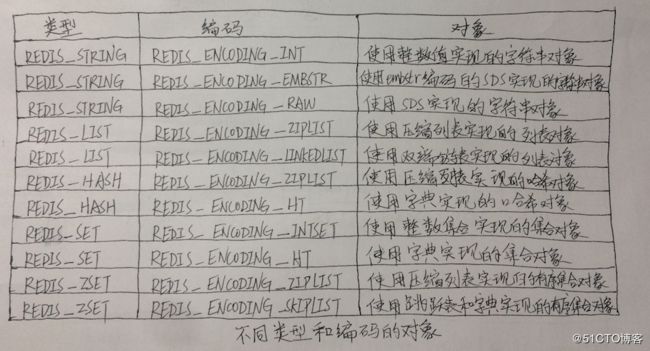 类型 编码 对象
REDIS_STRING REDIS_ENCODING_INT 使用整数值实现的字符串对象
REDIS_STRING REDIS_ENCODING_EMBSTR 使用embstr编码的SDS实现的字符串对象
REDIS_STRING REDIS_ENCODING_RAW 使用SDS实现的字符串对象
REDIS_LIST REDIS_ENCODING_ZIPLIST 使用压缩列表实现的列表对象
REDIS_LIST REDIS_ENCODING_LINKEDLIST 使用双端链表实现的列表对象
REDIS_HASH REDIS_ENCODING_ZIPLIST 使用压缩列表实现的哈希对象
REDIS_HASH REDIS_ENCODING_HT 使用字典实现的哈希对象
REDIS_SET REDIS_ENCODING_INTSET 使用整数集合实现的集合对象
REDIS_SET REDIS_ENCODING_HT 使用字典实现的集合对象
REDIS_ZSET REDIS_ENCODING_ZIPLIST 使用压缩列表实现的有序集合对象
REDIS_ZSET REDIS_ENCODING_SKIPLIST 使用跳跃表和字典实现的有序集合对象
不同类型和编码的对象
@51CTO博客